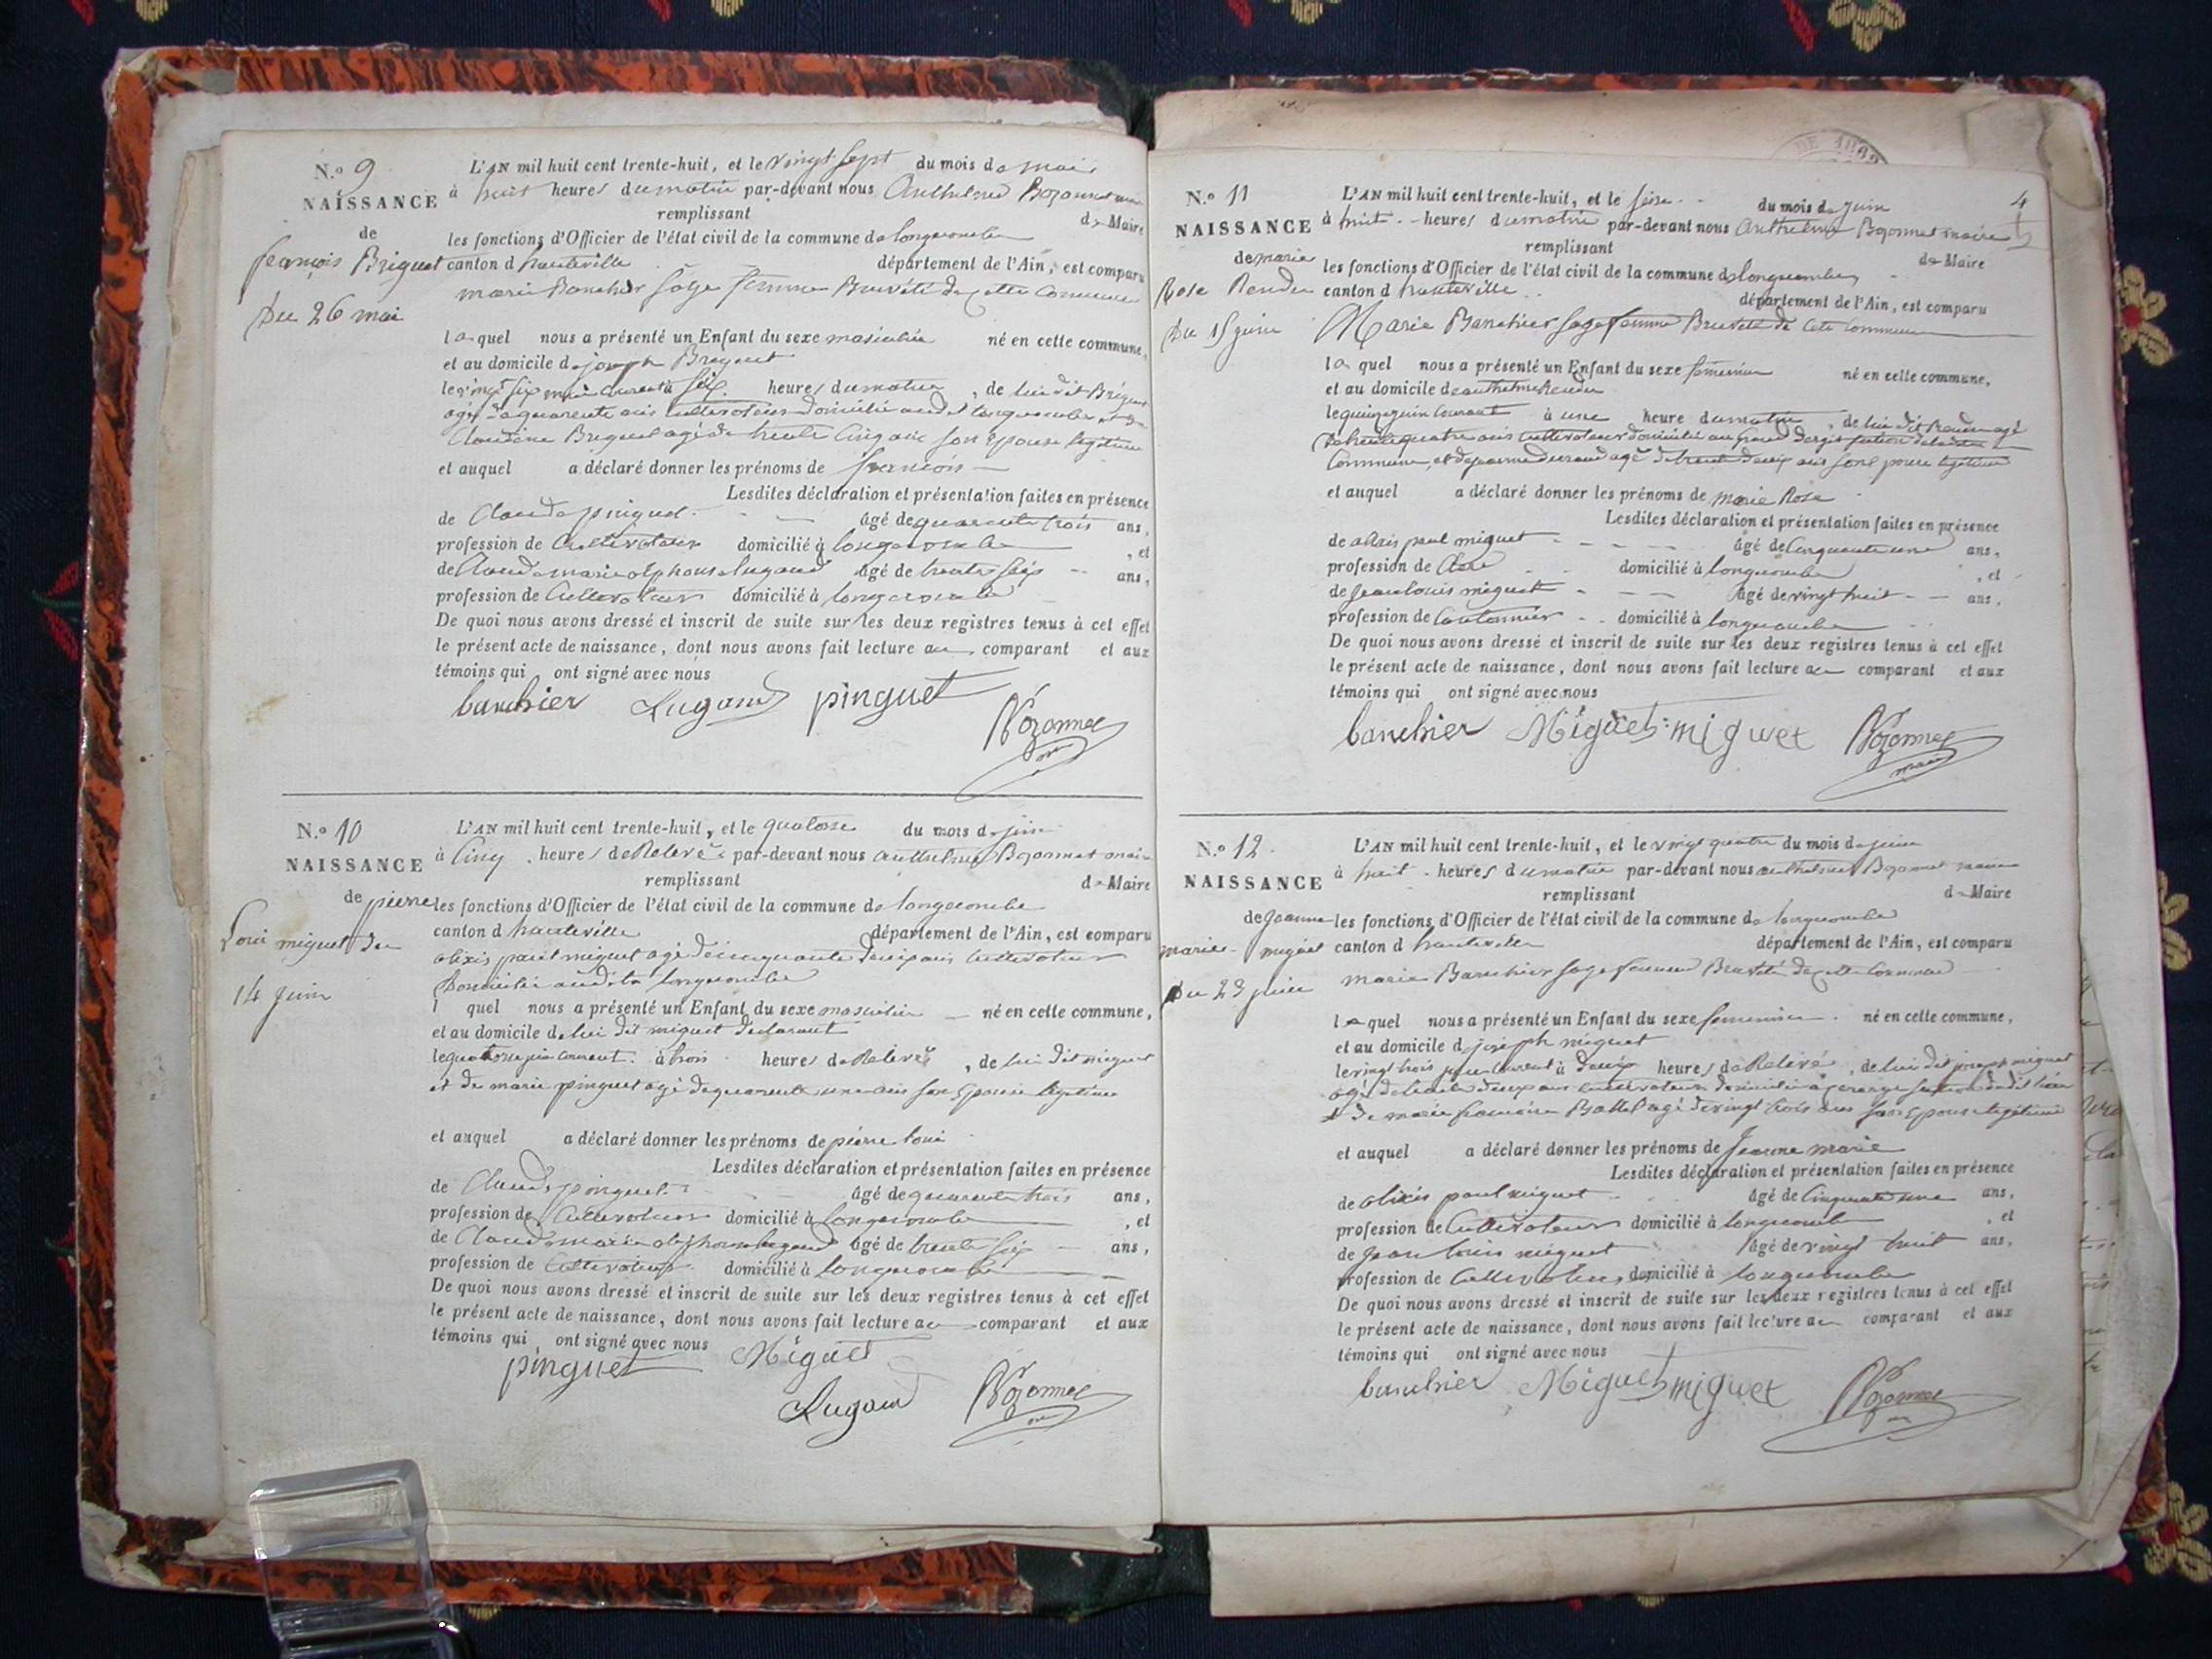 N.o 9
NAISSANCE
de
françois Briguet
Du 26 mai
L'AN mil huit cent trente-huit, et le vingt sept du mois de mai
à huit heures du matin par-devant nous Anthelme Bozonnet maire
remplissant
de Maire
les fonctions d'Officier de l'état civil de la commune de longecombe
canton d hauteville département de l'Ain, est comparu
marie Banchier sage femme Brevété de cette Commune
laquel nous a présenté un Enfant du sexe masculin né en cette commune,
et au domicile de joseph Briguet
le vingt six mai courant à six heures du matin, de lui dit Briguet
agé de quarente ans cultivateur domicilié audit longecombe et de
Claudine Briguet agé de trente cinq ans son Epouse legitime
et auquel a déclaré donner les prénoms de francois
Lesdites déclaration et présentation faites en présence
de Claude pinguet âgé de quarente trois ans,
profession de Cultivateur domicilié à longecombe, et
de Claude marie alphonse lugand âgé de trente six ans,
profession de Cultivateur domicilié à longecombe
De quoi nous avons dressé et inscrit de suite sur les deux registres tenus à cet effet
le présent acte de naissance, dont nous avons fait lecture au comparant et aux
témoins qui ont signé avec nous
banchier Lugand pinguet
Bozonnet
N.o 10
NAISSANCE
de pierre
Loui miguet du
14 juin
L'AN mil huit cent trente-huit, et le quatorse du mois de juin
à Cinq heures de Relevé par-devant nous anthelme Bozonnet maire
remplissant
de Maire
les fonctions d'Officier de l'état civil de la commune de longecombe
canton d hauteville département de l'Ain, est comparu
alixis paul miguet agé de cinquante ans cultivateur
Domicilié audit longecombe
l quel nous a présenté un Enfant du sexe masculin né en cette commune,
et au domicile de lui dit miguet declarant
le quatorse juin courent à trois heures de Relevé, de lui dit miguet
et de marie pinguet agé de quarente une ans son Epouse legitime
et auquel a déclaré donner les prénoms de pierre loui
Lesdites déclaration et présentation faites en présence
de Claude pinguet âgé de quarente trois ans,
profession de Cultivateur domicilié à longecombe, et
de Claude marie alphonse lugand âgé de trente six ans,
profession de Cultivateur domicilié à longecombe
De quoi nous avons dressé et inscrit de suite sur les deux registres tenus à cet effet
le présent acte de naissance, dont nous avons fait lecture au comparant et aux
témoins qui ont signé avec nous
pinguet Miguet
Lugand Bozonnet
DE 1862
4
N.o 11
NAISSANCE
de marie
Rose Rendu
Du 15 juin
L'AN mil huit cent trente-huit, et le seise du mois de juin
à huit heures du matin par-devant nous Anthelme Bozonnet maire
remplissant
de Maire
les fonctions d'Officier de l'état civil de la commune de longecombe
canton d hauteville
département de l'Ain, est comparu
Marie Banchier sage femme Brevété de cete Commune
laquel nous a présenté un Enfant du sexe femenin né en cette commune,
et au domicile de anthelme Rendu
le quinze juin Courant à une heure du matin, de lui dit Rendu agé
de trente quatre ans cultivateur domicilié au grand dergit section de ladite
Commune, et de jeanne durand agé de trente deux ans son Epouse legitime
et auquel a déclaré donner les prénoms de marie Rose
Lesdites déclaration et présentation faites en présence
de alixis paul miguet âgé de Cinquante une ans,
profession de domicilié à longecombe, et
de jean louis miguet âgé de vingt huit ans,
profession de Cantonnier domicilié à longecombe
De quoi nous avons dressé et inscrit de suite sur les deux registres tenus à cet effet
le présent acte de naissance, dont nous avons fait lecture au comparant et aux
témoins qui ont signé avec nous
banchier Miguet miguet Bozonnet
maire
N.o 12
NAISSANCE
de Jeanne
marie miguet
Du 23 juin
L'AN mil huit cent trente-huit, et le vingt quatre du mois de juin
à huit heures du matin par-devant nous anthelme Bozonnet maire
remplissant
de Maire
les fonctions d'Officier de l'état civil de la commune de longecombe
canton d hauteville département de l'Ain, est comparu
marie Banchier sage femme Brevété de cette Commune
laquel nous a présenté un Enfant du sexe femenin né en cette commune,
et au domicile d joseph miguet
le vingt trois juin courent à deux heures de Relevé, de lui dit joseph miguet
agé de trente deux ans cultivateur domicilié à section dudit lieu
et de marie francoise Ballet agé de vingt trois ans son Epouse legitime
et auquel a déclaré donner les prénoms de Jeanne marie
Lesdites déclaration et présentation faites en présence
de alixis paul miguet âgé de Cinquante une ans,
profession de Cultivateur domicilié à longecombe, et
de jean louis miguet âgé de vingt huit ans,
profession de Cultivateur domicilié à longecombe
De quoi nous avons dressé et inscrit de suite sur les deux registres tenus à cet effet
le présent acte de naissance, dont nous avons fait lecture au comparant et aux
témoins qui ont signé avec nous
banchier Miguet miguet Bozonnet